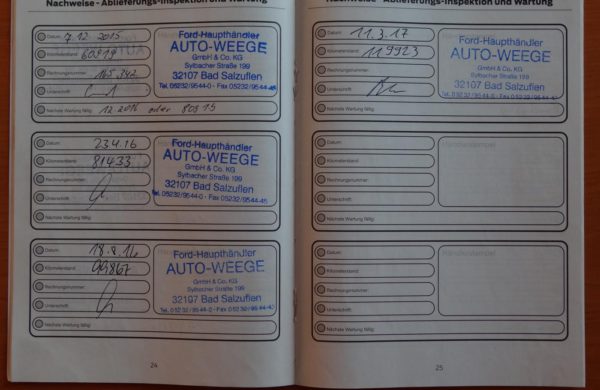 Nachweise - Ablieferungs-Inspektion und Wartung
Datum: 7.12.2015
Kilometerstand: 60919
Rechnungsnummer: 165342
Unterschrift:
Nächste Wartung fällig: 12.2016 oder 80915
Ford-Haupthändler
AUTO-WEEGE
GmbH & Co. KG
Sylbacher Straße 199
32107 Bad Salzuflen
Tel. 05232/9544-0 · Fax 05232/9544-45
Datum: 23.4.16
Kilometerstand: 81433
Rechnungsnummer:
Unterschrift:
Nächste Wartung fällig:
Ford-Haupthändler
AUTO-WEEGE
GmbH & Co. KG
Sylbacher Straße 199
32107 Bad Salzuflen
Tel. 05232/9544-0 · Fax 05232/9544-45
Datum: 18.8.16
Kilometerstand: 99867
Rechnungsnummer:
Unterschrift:
Nächste Wartung fällig:
Ford-Haupthändler
AUTO-WEEGE
GmbH & Co. KG
Sylbacher Straße 199
32107 Bad Salzuflen
Tel. 05232/9544-0 · Fax 05232/9544-45
24
Nachweise - Ablieferungs-Inspektion und Wartung
Datum: 11.3.17
Kilometerstand: 119923
Rechnungsnummer:
Unterschrift:
Nächste Wartung fällig:
Ford-Haupthändler
AUTO-WEEGE
GmbH & Co. KG
Sylbacher Straße 199
32107 Bad Salzuflen
Tel. 05232/9544-0 · Fax 05232/9544-45
Datum:
Kilometerstand:
Rechnungsnummer:
Unterschrift:
Nächste Wartung fällig:
Händlerstempel
Datum:
Kilometerstand:
Rechnungsnummer:
Unterschrift:
Nächste Wartung fällig:
Händlerstempel
25